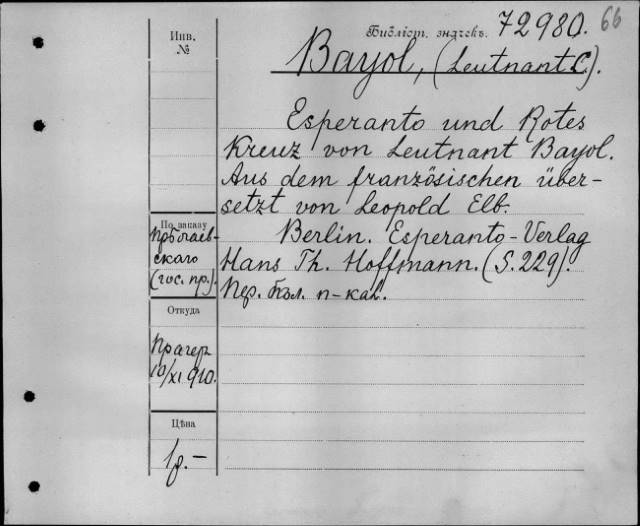 66
Библіот. значекъ. 72980.
Инв.
№
Bayol, (Leutnant C.).
Esperanto und Rotes
Kreuz von Leutnant Bayol.
Aus dem französischen über-
setzt von Leopold Elb.
Berlin. Esperanto-Verlag
Hans Th. Hoffmann. (S. 229).
Пер. бѣл. п-кал.
По заказу
скаго
(гос. пр.).
Откуда
Прагеръ
10/XI 910.
Цѣна
1р.-